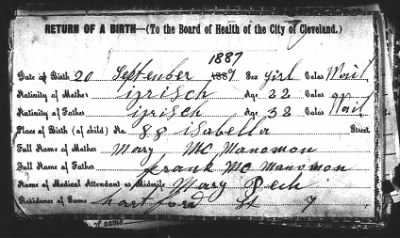 RETURN OF A BIRTH—(To the Board of Health of the City of Cleveland.)
1887
Date of Birth 20 September 1887 Sex girl Color Wait
Nativity of Mother irisch Age 22 Color Wait
Nativity of Father irisch Age 32 Color
Place of Birth (of child) No. 88 isabella Street
Full Name of Mother Mary Mc Manomon
Full Name of Father frank Mc Manomon
Name of Medical Attendant or Midwife Mary
Residence of Same hartford St 7